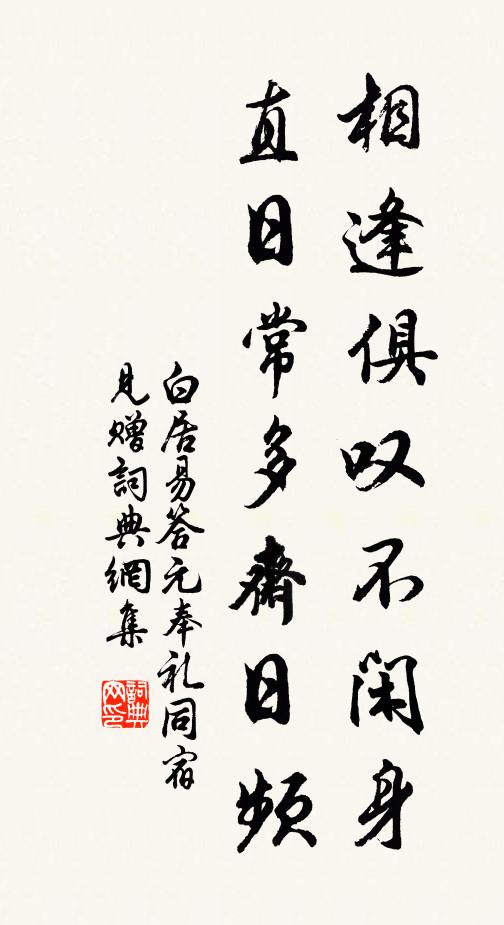 相逢俱叹不闲身
直日常多齋日頻
白居易答元奉礼同宿
見赠詞典網集
詞典
网印